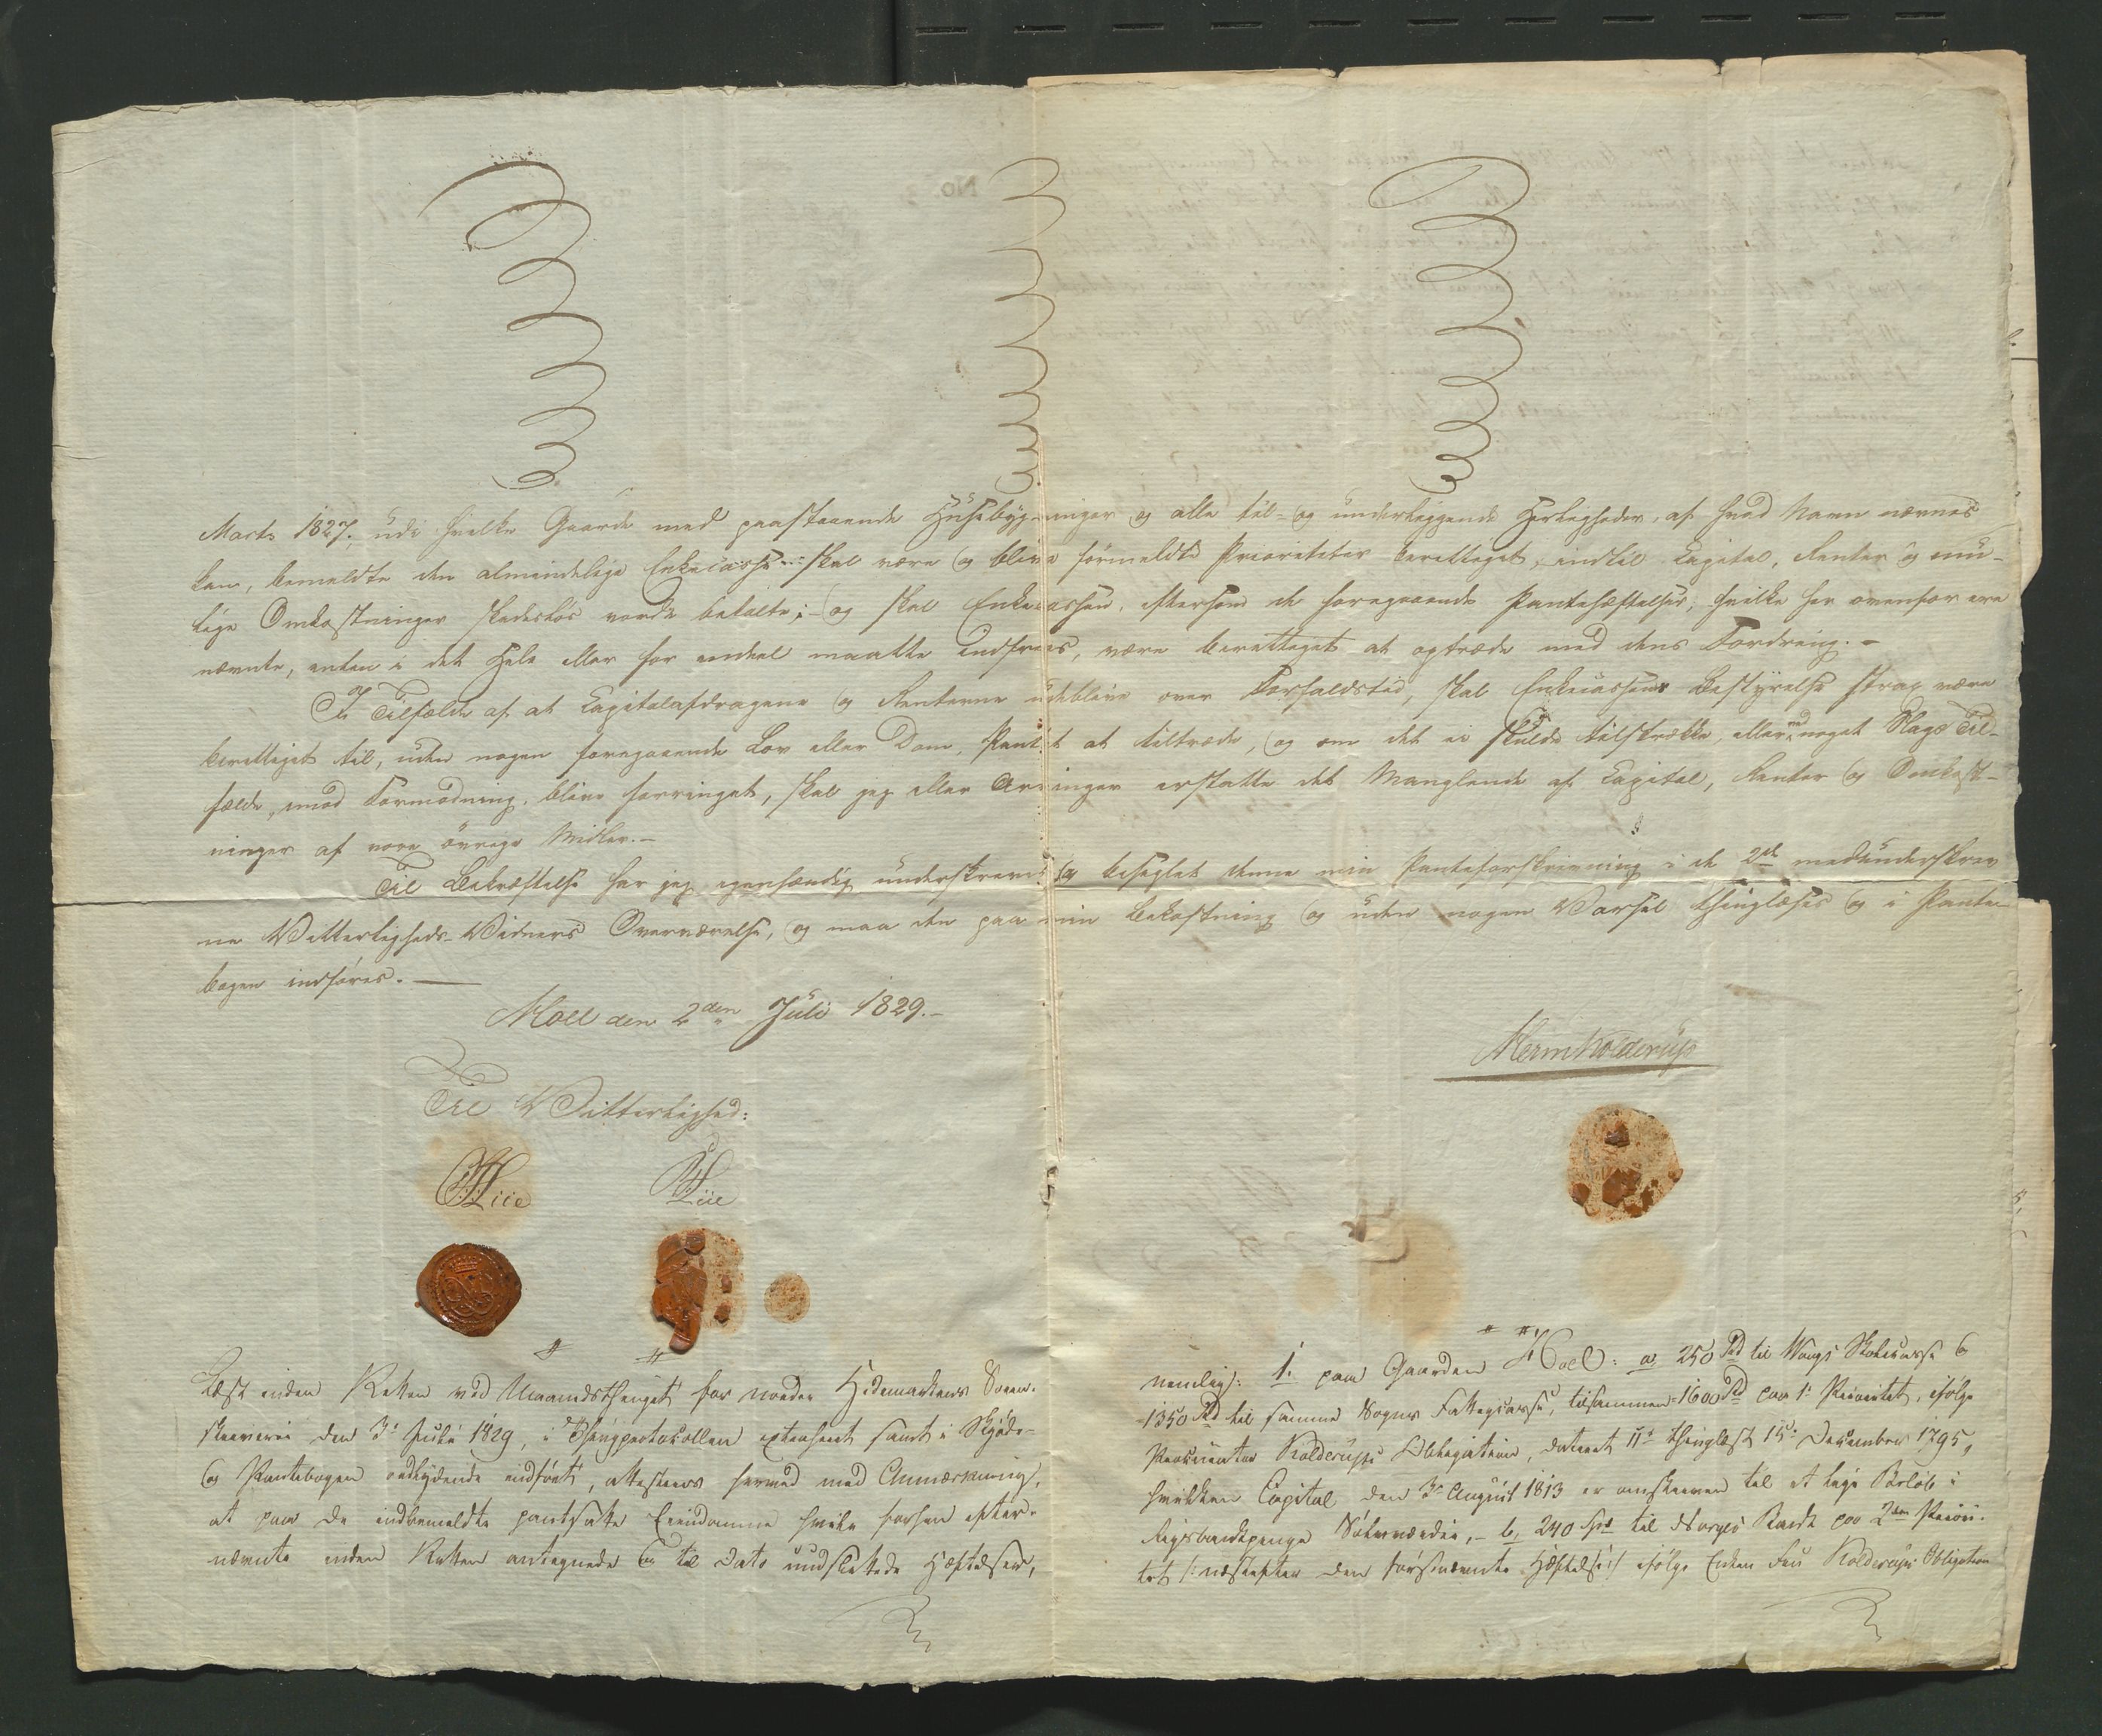 Marts 1827; udi hvilke Gaarde med paastaaende Huusebygninger og alle til- og underliggende Herligheder, af hvad Navn nævnes
kan, bemeldte den almindelige Enkecasse skal være og blive formeldte Prioriteter berettiget, indtil Capital, Renter og mu-
lige Omkostninger skadesløs vorde betalte; og skal Enkecassen, eftersom de foregaaende Pantehæftelser, hvilke her ovenfor ere
nævnte, enten i det Hele eller for endeel maatte indfries, være berettiget at optræde med dens Fordring.-
I Tilfælde af at Capitalafdragene og Renterne udeblive over Forfaldstid, skal Enkecassens Bestyrelse strax være
berettiget til, uden nogen foregaaende Lov eller Dom, Pantet at tiltræde, og om det ei skulde tilstrække, eller ved noget Slags Til-
fælde, mod Formodning, blive forringet, skal jeg eller Arvinger erstatte det Manglende af Capital, Renter og Omkost-
ninger af vore øvrige Midler.-
Til Bekræftelse har jeg egenhændig underskrevet og beseglet denne min Panteforskrivning i de 2de medunderskrev
ne Vitterligheds-Vidners Overværelse, og maa den paa min Bekostning og uden nogen Varsel thinglæses og i Pante-
bogen indføres.-
Hoel den 2den Juli 1829.-
Herm Kolderup
Til Vitterlighed:
Liie Liie
Læst inden Retten ved Maanedsthinget for nordre Hedemarkens Soren-
skriverie den 3die Julii 1829, i Thingprotocollen extraheret samt i Skjøde-
og Pantebogen ordlydende indført, attesteres herved med Anmærkning,
at paa de indbemeldte pantsatte Eiendomme hvile forhen efter-
nævnte inden Retten antegnede og til Dato uudslettede Hæftelser,
nemlig: 1. paa Gaarden Hoel: a, 250 Rd til Wangs Skolecasse og
1350 Rd til samme Sogns Fattigcasse, tilsammen 1600 Rd paa 1ste Prioritet, ifølge
Procurator Kolderups Obligation, dateret 11te thinglæst 15de December 1795,
hvilken Capital den 3die August 1813 er omskreven til et lige Beløb i
Rigsbankpenge Sølvværdie,- b, 240 Spd til Norges Bank paa 2den Priori-
tet /: næstefter den førstnævnte Hæftelse :/ ifølge Enken Fru Kolderups Obligation